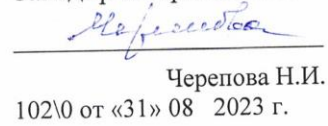 Черепова Н.И.
102\0 от «31» 08 2023 г.